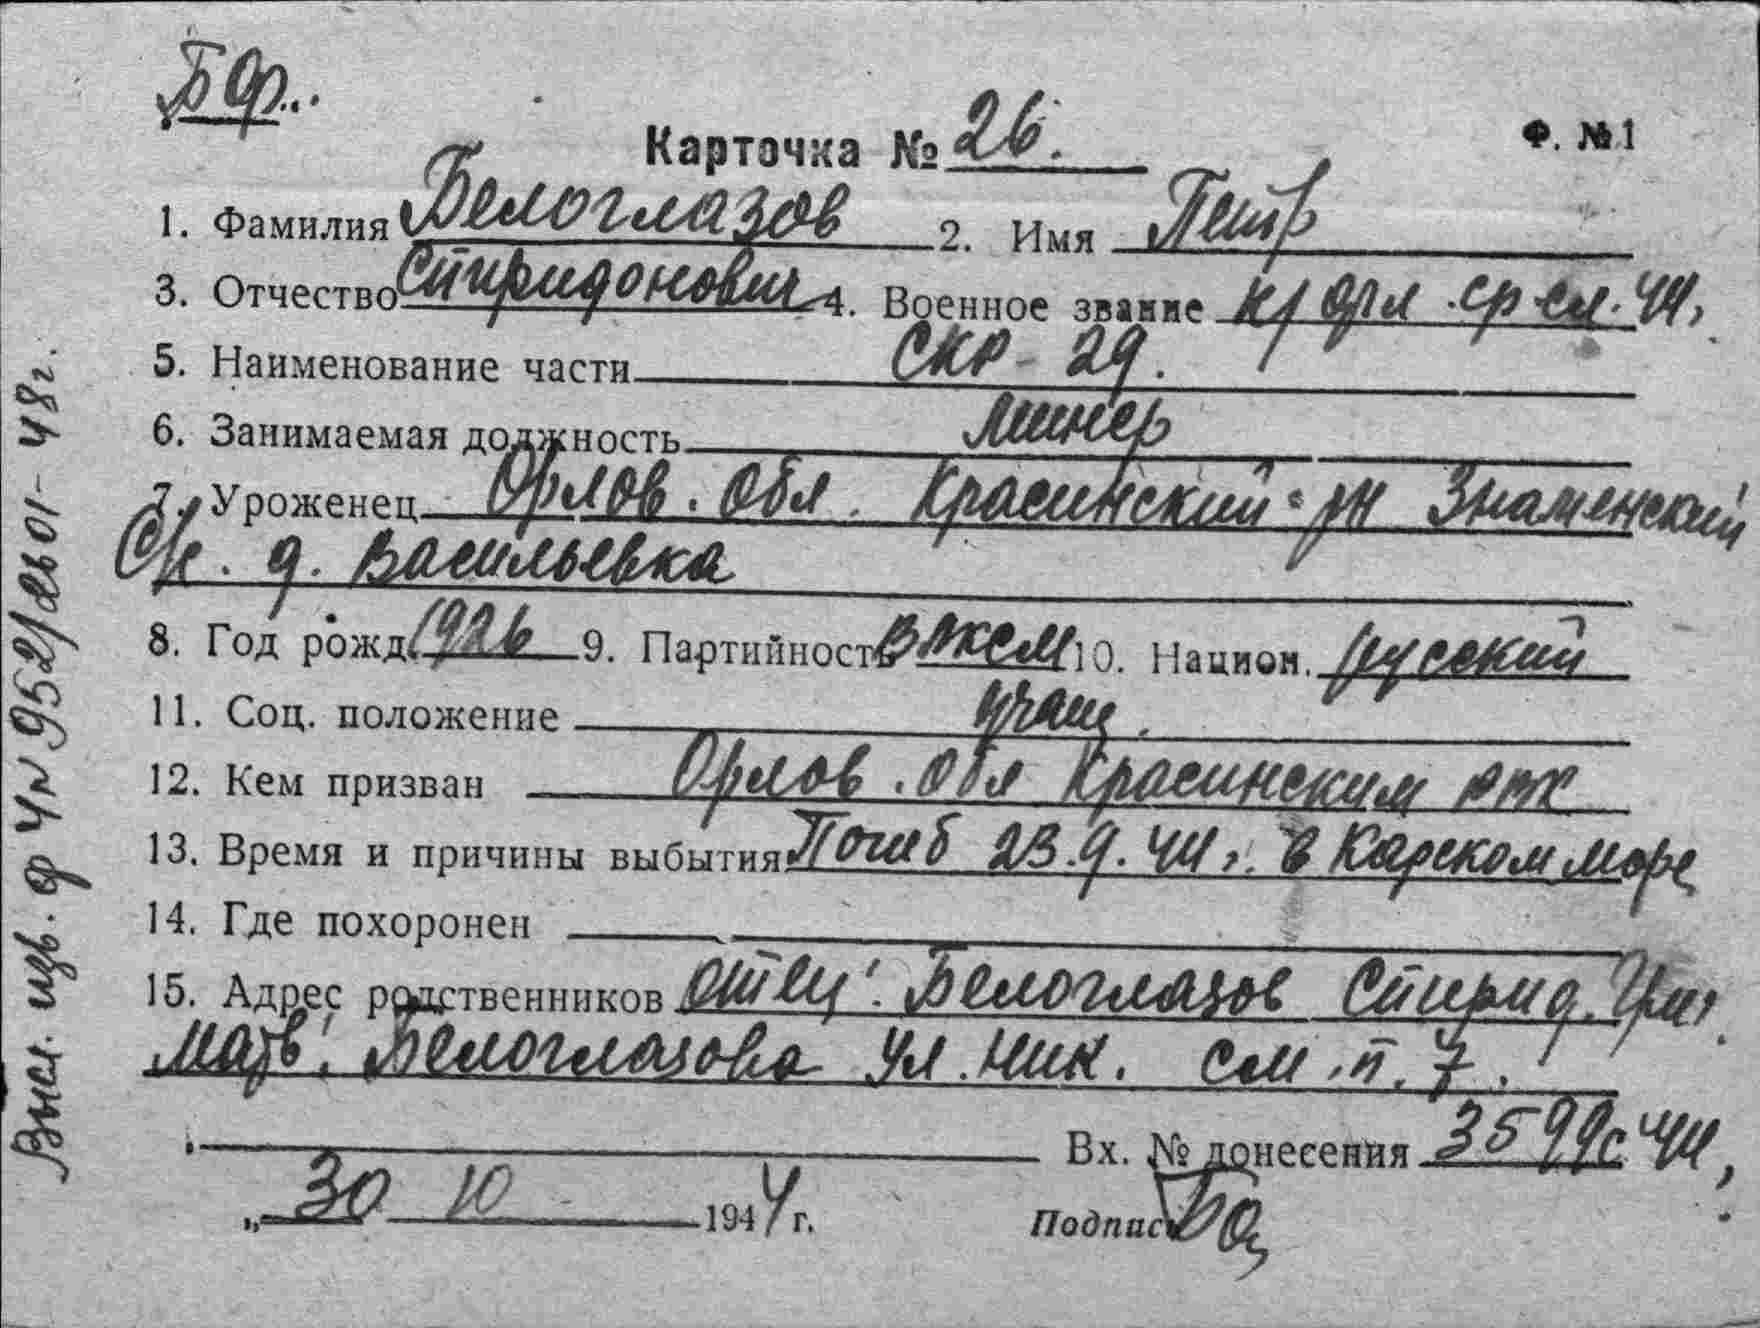 БФ...
Карточка № 26. Ф. №1
1. Фамилия Белоглазов 2. Имя Петр
3. Отчество Спиридонович 4. Военное звание кр фл .ср сл. 44,
5. Наименование части СКР - 29.
6. Занимаемая должность минер
7. Уроженец Орлов. обл. Красинский рн Знаменский
с/с. д. Васильевка
8. Год рожд. 1926 9. Партийность ВЛКСМ 10. Национ. русский
11. Соц. положение учащ.
12. Кем призван Орлов. обл Красинским РВК
13. Время и причины выбытия Погиб 23.9.44 г. в Карском море
14. Где похоронен
15. Адрес родственников отец: Белоглазов Спирид. Григ.
мать: Белоглазова Ул. Ник. см. п. 7.
Вх. № донесения 3599с 44,
„ 30 10 1944 г. Подпись
Высл. изв. ф 4 № 952/ 01-48г.